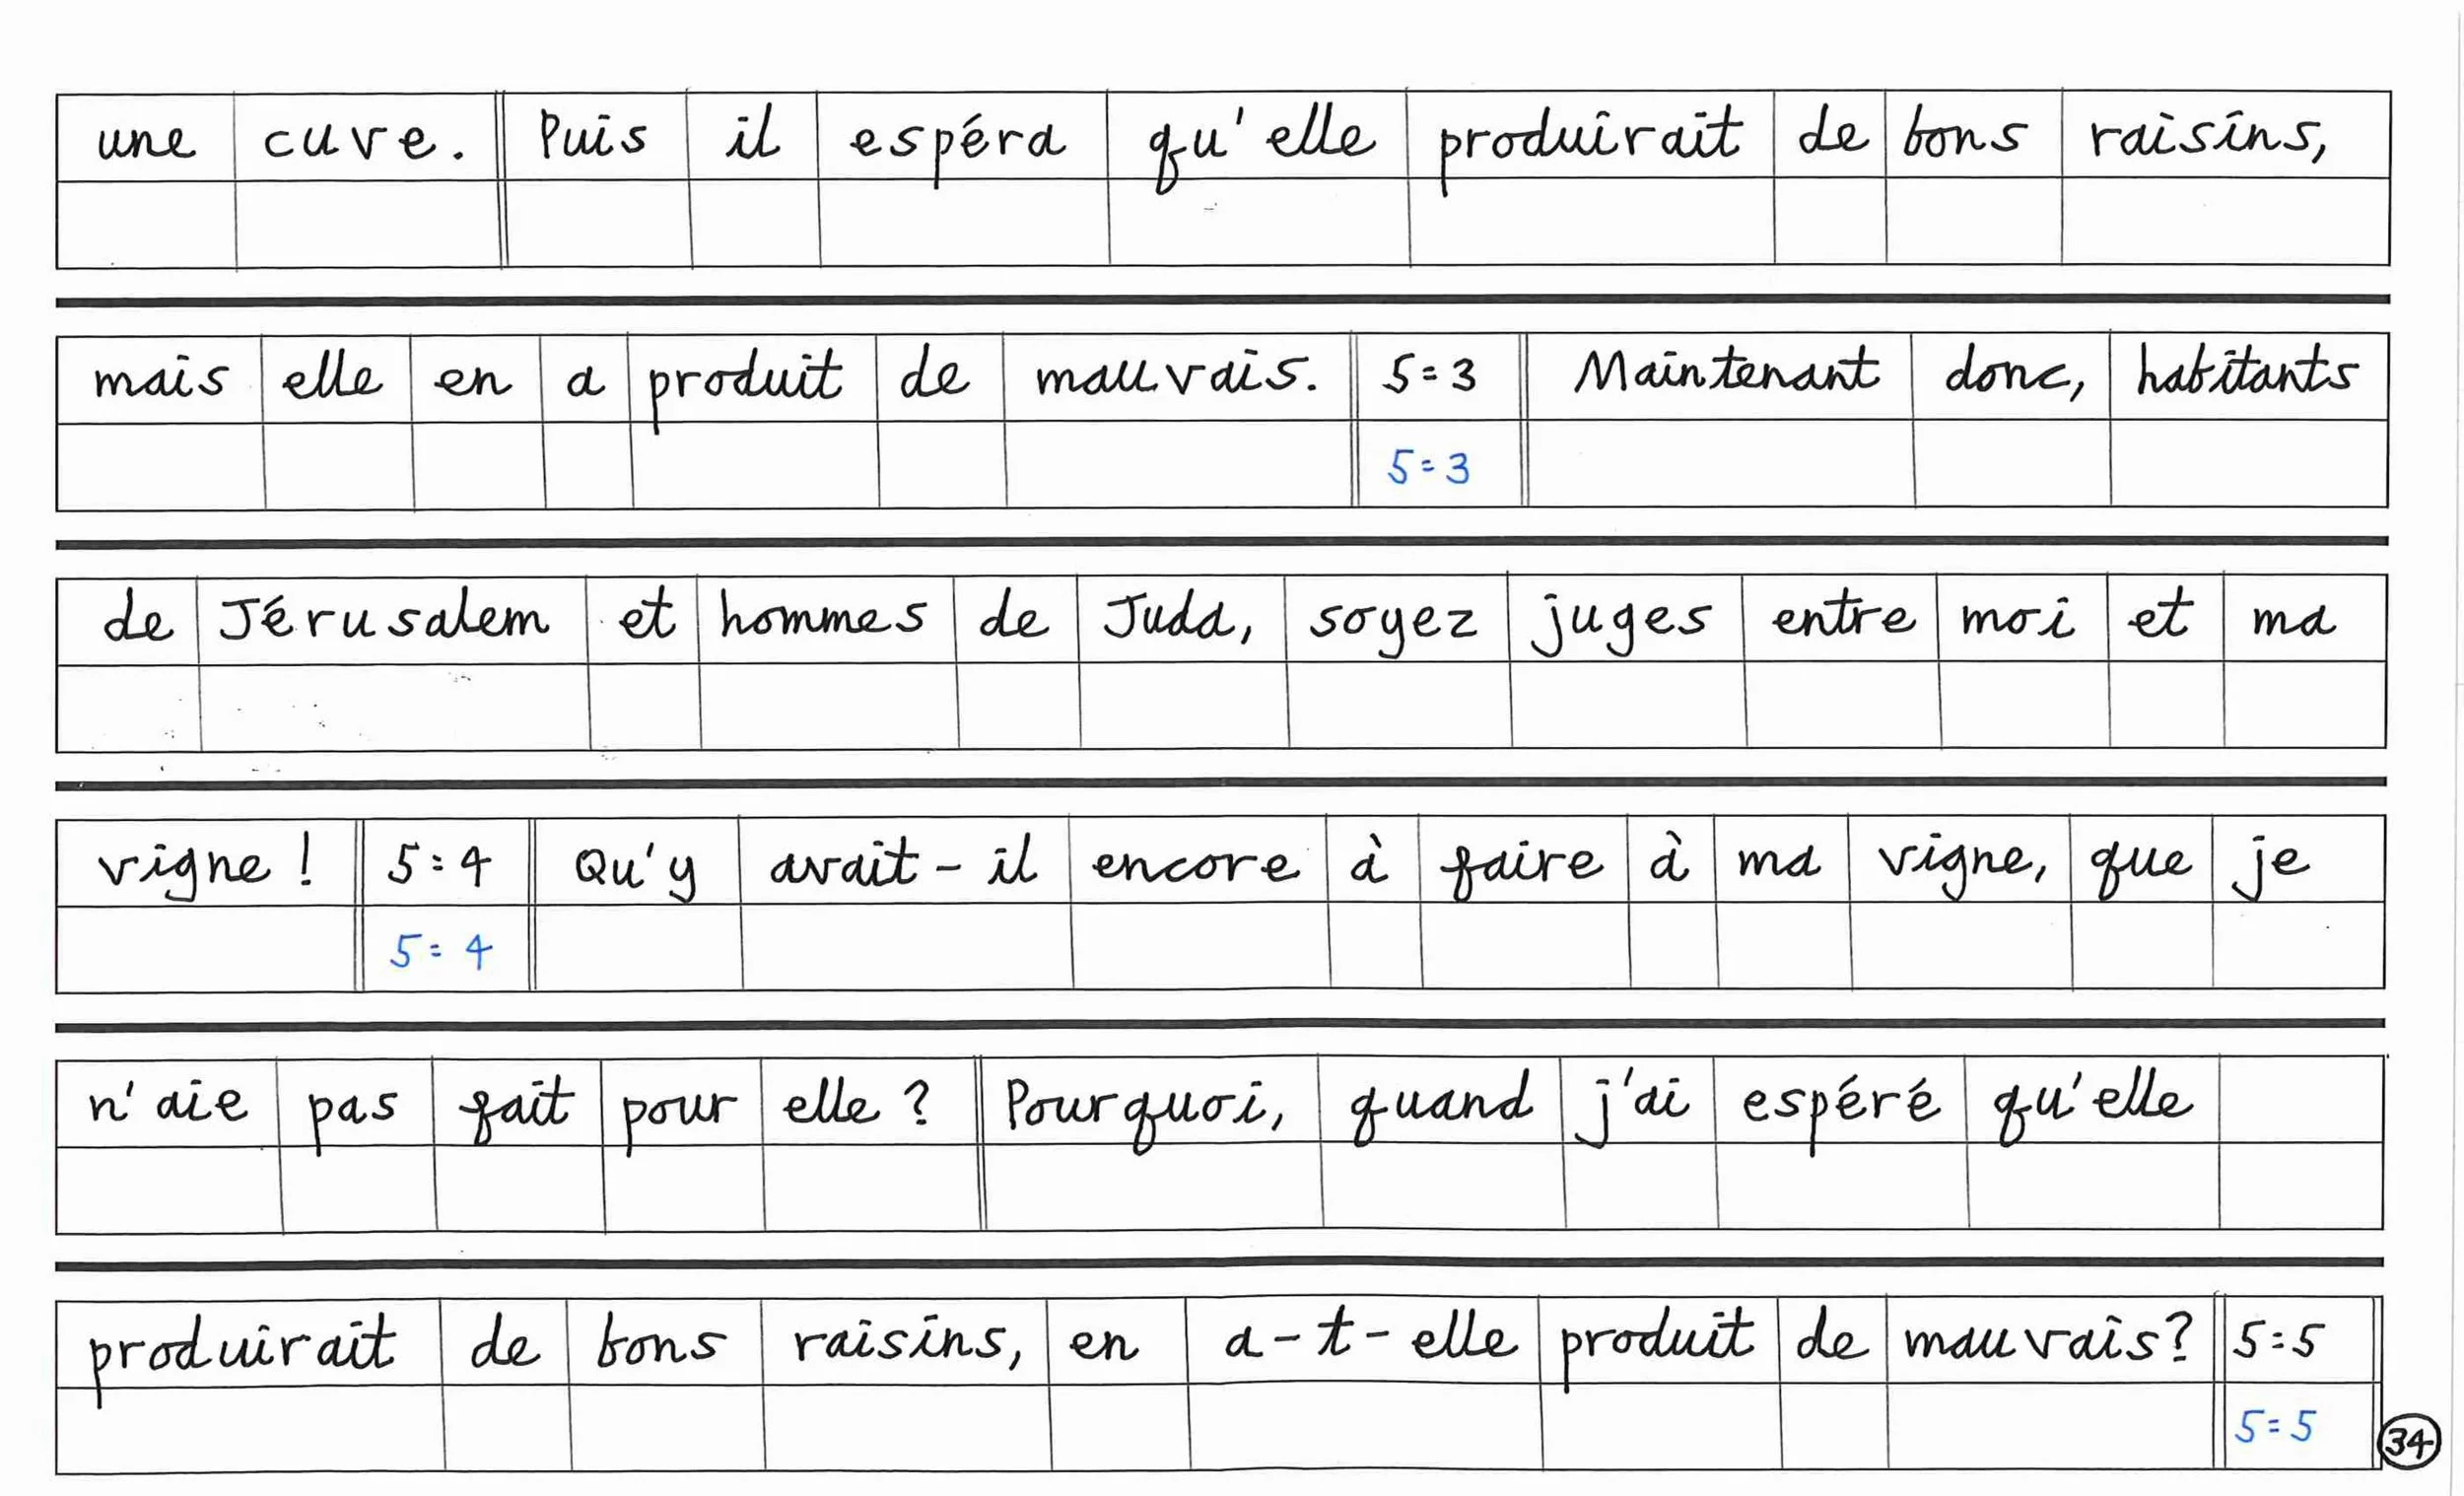 une cuve. Puis il espéra qu'elle produirait de bons raisins,
mais elle en a produit de mauvais. 5:3 Maintenant donc, habitants
5:3
de Jérusalem et hommes de Juda, soyez juges entre moi et ma
vigne ! 5:4 Qu'y avait-il encore à faire à ma vigne, que je
5:4
n'aie pas fait pour elle ? Pourquoi, quand j'ai espéré qu'elle
produirait de bons raisins, en a-t-elle produit de mauvais? 5:5
5:5
34